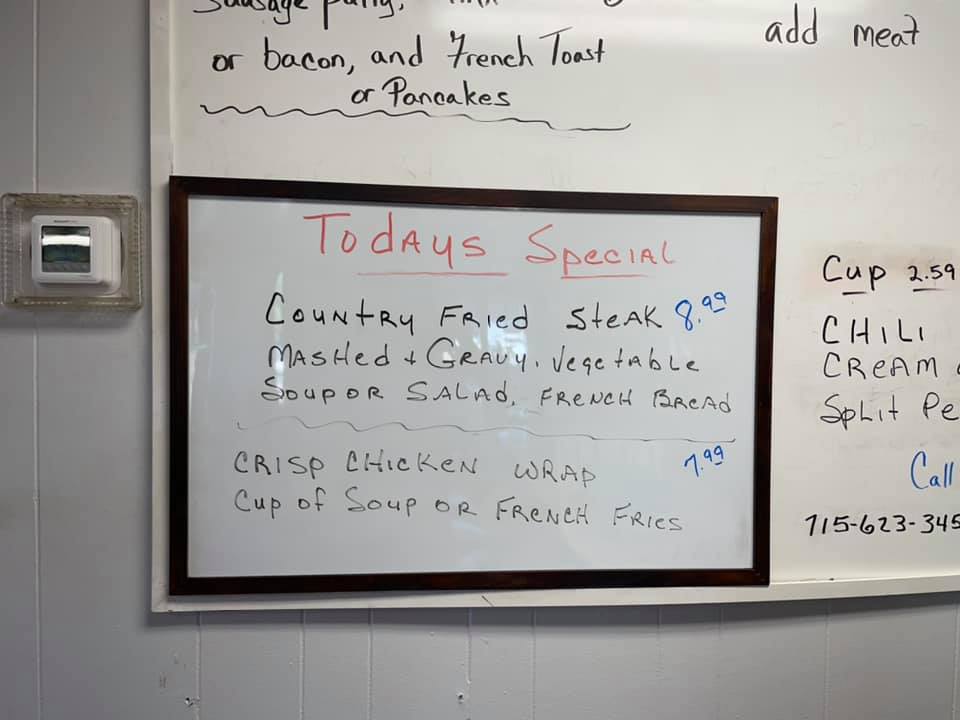 Sausage patty,
or bacon, and French Toast
or Pancakes
add meat
Todays Special
Country Fried Steak 8.99
Mashed + Gravy, Vegetable
Soup or Salad, French Bread
Crisp Chicken Wrap 7.99
Cup of Soup or French Fries
Cup 2.59
CHILI
CREAM
Split Pe
Call
715-623-345